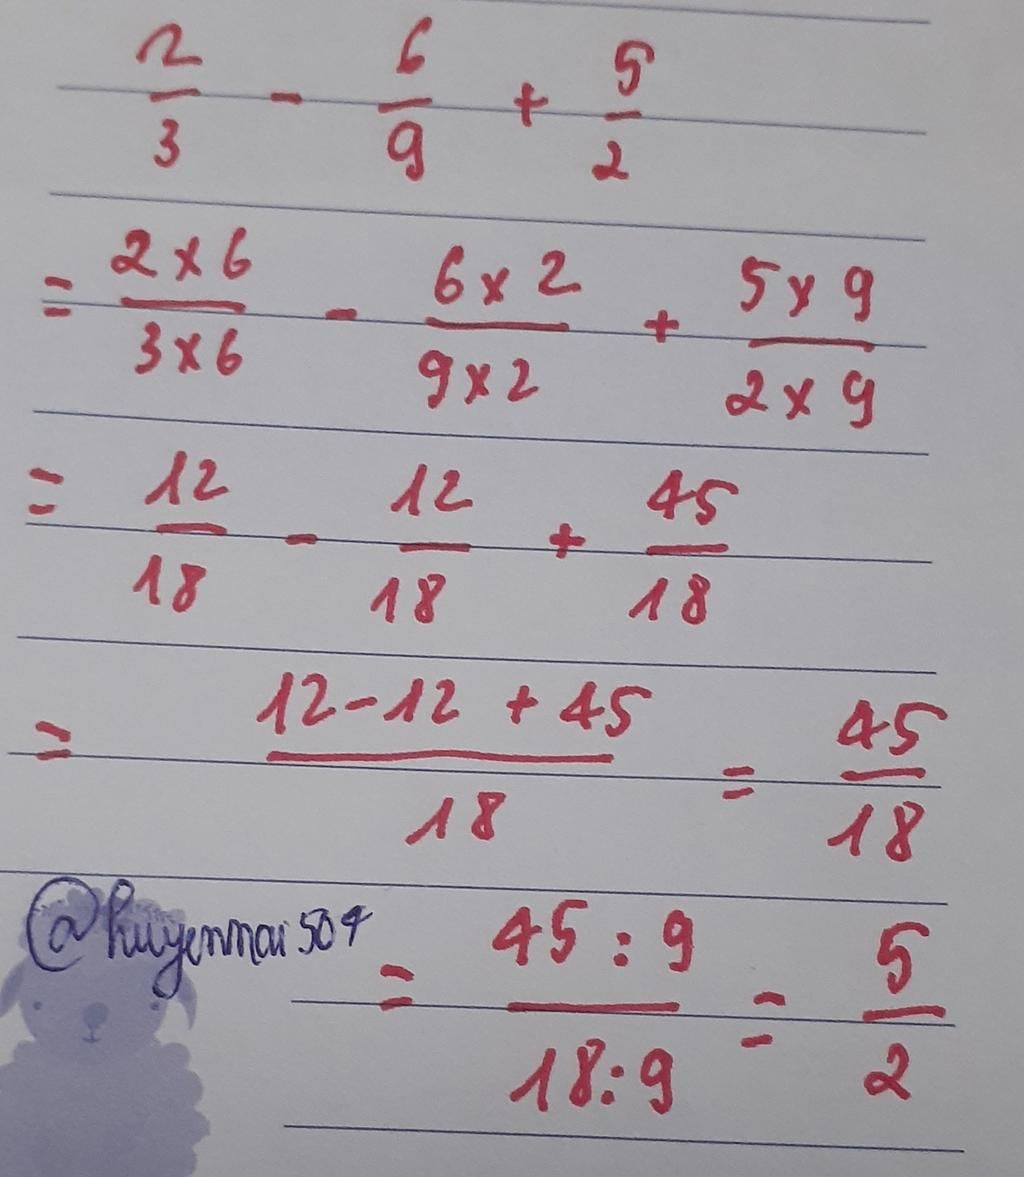 2/3 - 6/9 + 5/2
= 2 x 6/3 x 6 - 6 x 2/9 x 2 + 5 x 9/2 x 9
= 12/18 - 12/18 + 45/18
= 12 - 12 + 45/18 = 45/18
@huyenmai504 = 45 : 9/18 : 9 = 5/2